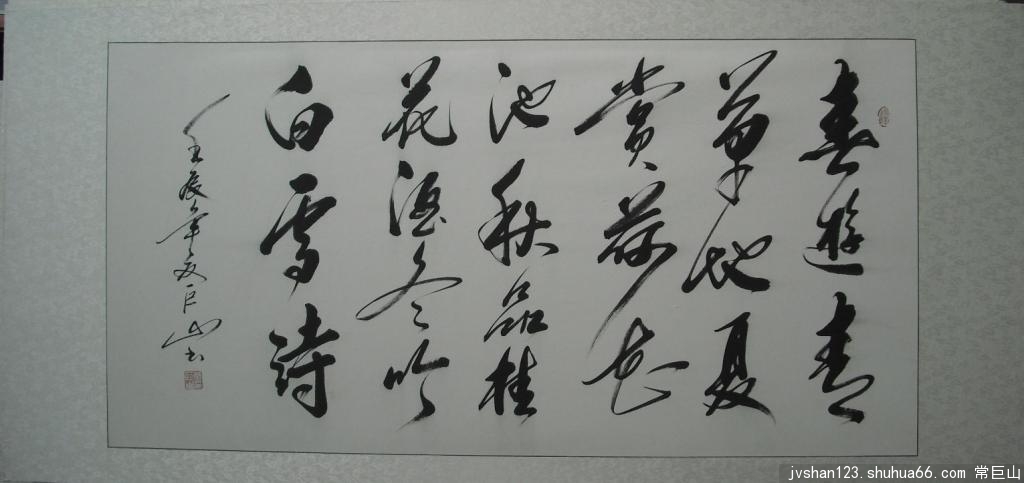 春遊青
草地夏
赏荷花
池秋品桂
花酒冬吟
白雪詩
壬辰年夏巨山书
jvshan123.shuhua66.com 常巨山